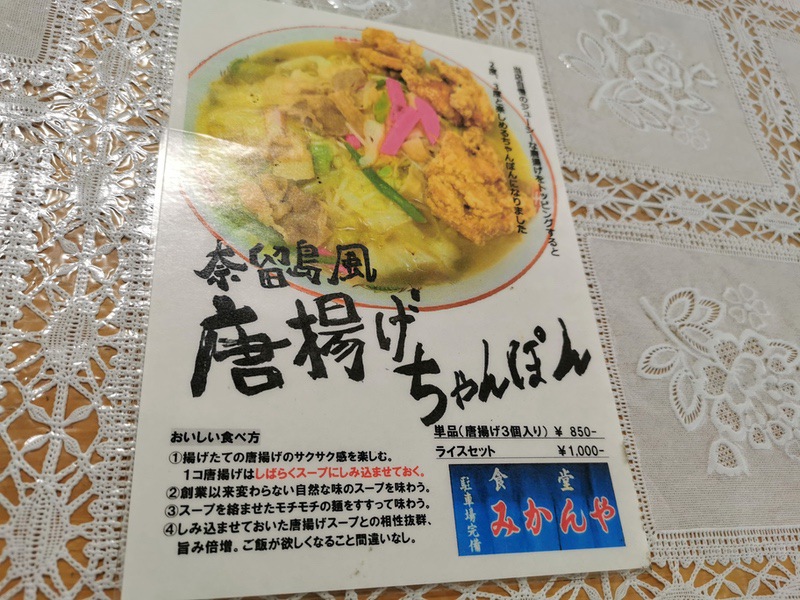 当店自慢のジューシーな唐揚げをトッピングすると
2度、3度と楽しめるちゃんぽんになりました
奈留島風
唐揚げ
ちゃんぽん
おいしい食べ方
①揚げたての唐揚げのサクサク感を楽しむ。
1コ唐揚げはしばらくスープにしみ込ませておく。
②創業以来変わらない自然な味のスープを味わう。
③スープを絡ませたモチモチの麺をすすって味わう。
④しみ込ませておいた唐揚げスープとの相性抜群、
旨み倍増。ご飯が欲しくなること間違いなし。
単品(唐揚げ3個入り) ¥ 850-
ライスセット ¥1,000-
食堂
みかんや
駐車場完備